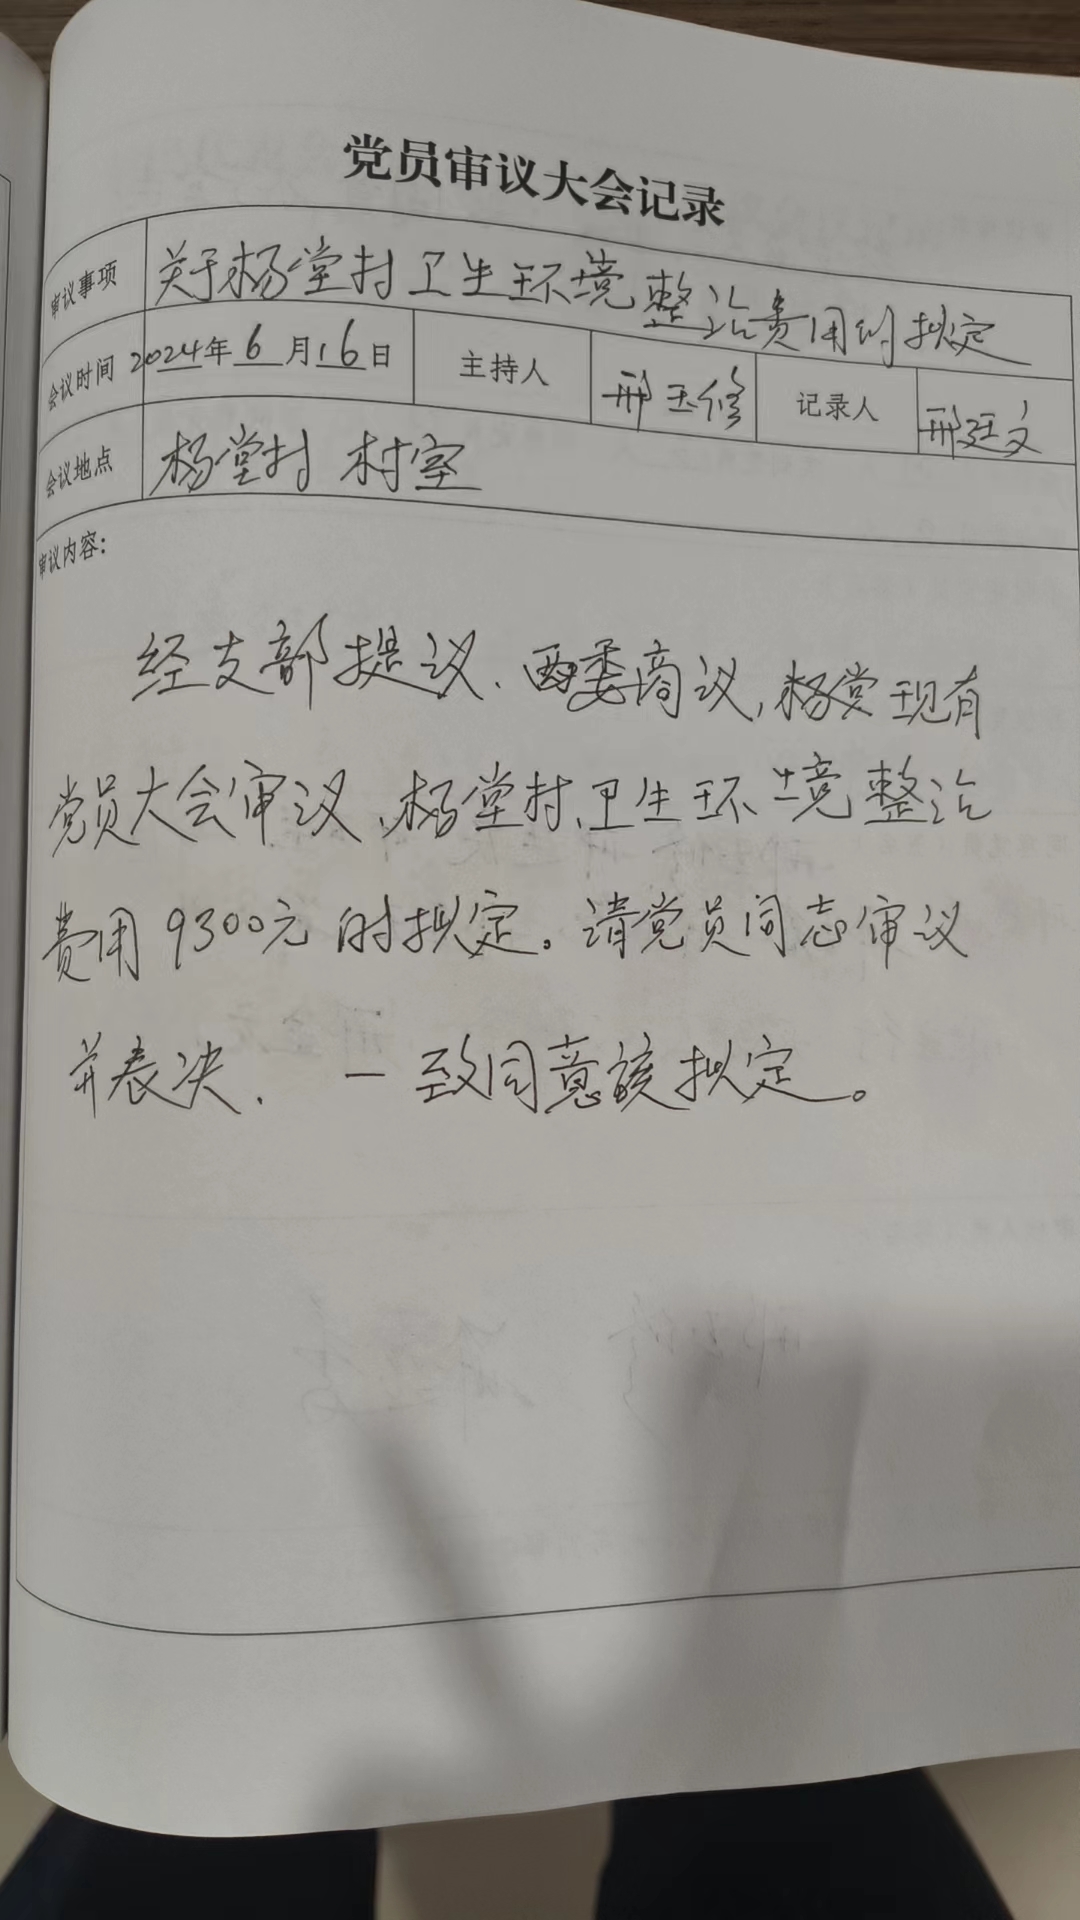 党员审议大会记录
审议事项 关于杨堂村卫生环境整治费用的拟定
会议时间 2024年6月16日 主持人 邢玉修 记录人 邢廷文
会议地点 杨堂村 村室
审议内容：
经支部提议、两委商议，杨党现有
党员大会审议、杨堂村卫生环境整治
费用9300元的拟定。请党员同志审议
并表决． 一致同意该拟定。